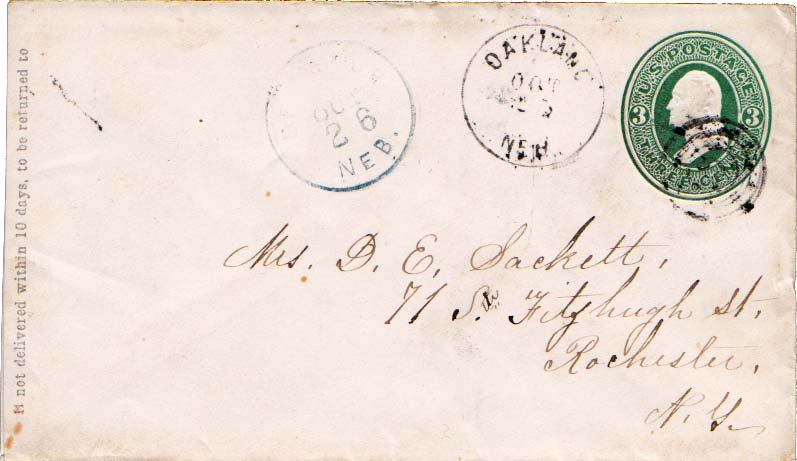 If not delivered within 10 days, to be returned to
OCT
26
NEB.
OAKLAND
OCT
25
NEB.
U.S. POSTAGE
3 3
THREE CENTS
Mrs. D. E. Sackett,
71 So. Fitzhugh St.
Rochester,
N. Y.